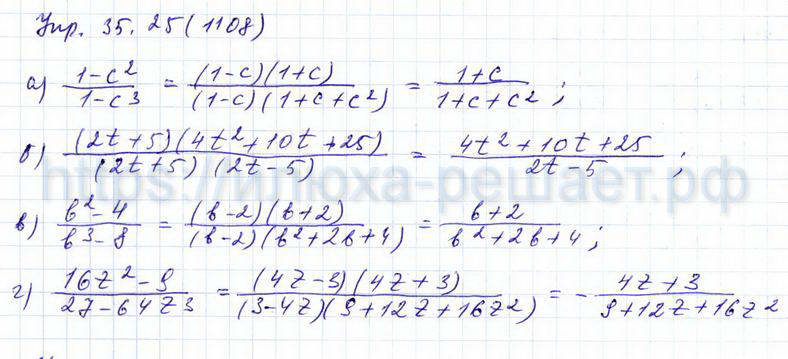 Упр. 35.25(1108)
а) (1-c²)/(1-c³) = ((1-c)(1+c))/((1-c)(1+c+c²)) = (1+c)/(1+c+c²);
б) ((2t+5)(4t²+10t+25))/((2t+5)(2t-5)) = (4t²+10t+25)/(2t-5);
https://илюха-решает.рф
в) (b²-4)/(b³-8) = ((b-2)(b+2))/((b-2)(b²+2b+4)) = (b+2)/(b²+2b+4);
г) (16z²-9)/(27-64z³) = ((4z-3)(4z+3))/((3-4z)(9+12z+16z²)) = -(4z+3)/(9+12z+16z²)